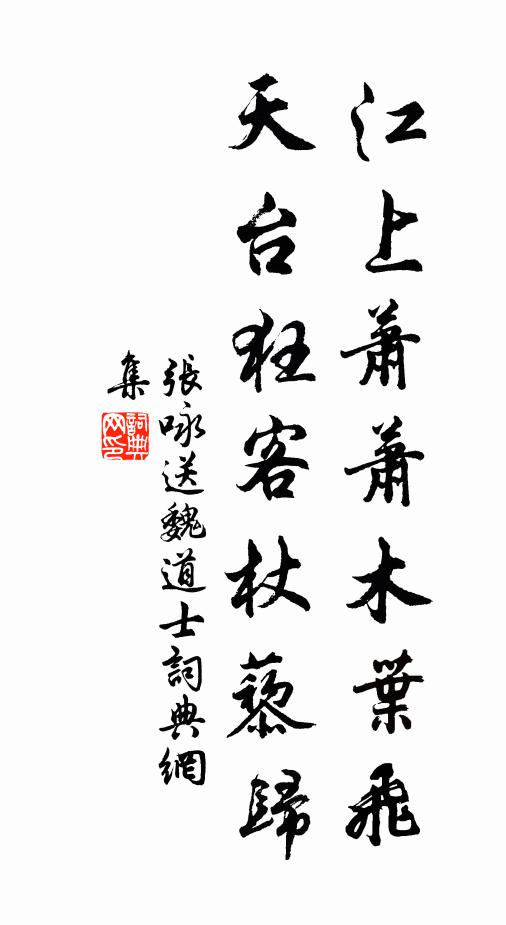 江上蕭蕭木葉飛
天台狂客杖藜歸
張咏送魏道士詞典網
集
詞典
网印